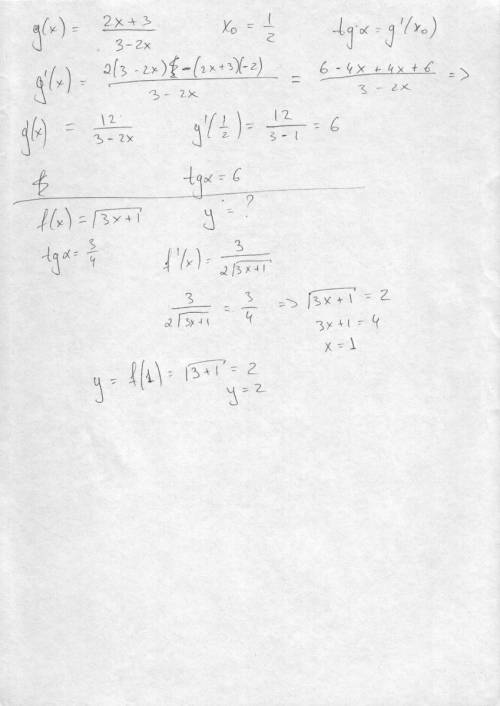 g(x) = (2x + 3)/(3 - 2x) x₀ = 1/2 tgα = g'(x₀)
g'(x) = (2(3 - 2x) - (2x+3)(-2))/(3 - 2x) = (6 - 4x + 4x + 6)/(3 - 2x) =>
g'(x) = 12/(3 - 2x) g'(1/2) = 12/(3 - 1) = 6
tgα = 6
f(x) = √(3x+1) y = ?
tgα = 3/4 f'(x) = 3/(2√(3x+1))
3/(2√(3x+1)) = 3/4 => √(3x+1) = 2
3x+1 = 4
x = 1
y = f(1) = √(3+1) = 2
y = 2